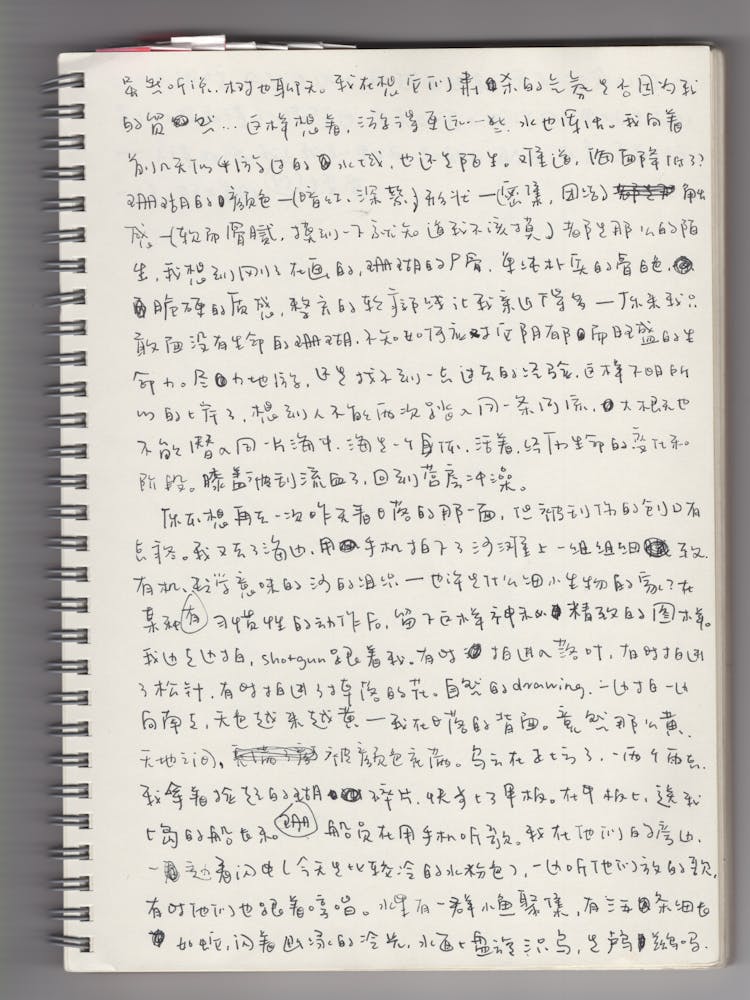 虽然听说,树也聊天。我在想它们肃杀的气氛是否因为我
的贸然…这样想着,游得更远一些,水也浑浊。我向着
前几天似乎游过的水域,也还是陌生。难道,海面降低了?
珊瑚的颜色—(暗红、深紫)形状—(密集,团活)触
感—(软而滑腻,摸到一下就知道我不该摸)都是那么的陌
生,我想到刚刚在画的,珊瑚的尸骨,单纯朴实的骨色,
脆硬的质感,整齐的轮廓线让我亲近得多—原来我只
敢面没有生命的珊瑚,不知如何应对它阴郁而旺盛的生
命力。尽力地游,还是找不到一点过去的经验,这样不明所
以的上岸了,想到人不能两次踏入同一条河流,大概也
不能潜入同一片海中,海是一个身体,活着,经历生命的变化和
阶段。膝盖被刮流血了,回到营房冲澡。
你本想再去一次昨天看日落的那一面,但被刮伤的创口有
点疼。我又去了海边,用手机拍下了沙滩上一组组细致
有机、数学意味的沙的组织—也许是什么细小生物的家?在
某种有习惯性的动作后,留下这样神秘精致的图样。
我边走边拍,shotgun跟着我。有时拍进入落叶,有时拍进
了松针,有时拍进了掉落的花。自然的drawing。一边拍一边
向南走,天色越来越黄—我在日落的背面。竟然那么黄,
天地之间,被颜色充满。乌云在上方了,一两个雨点。
我拿着捡起的珊瑚碎片,快步上了甲板。在甲板上,送我
上岛的船长和船员在用手机听歌。我在他们的旁边,
一边看闪电(今天是比较冷的水粉色),一边听他们放的歌,
有时他们也跟着哼唱。水里有一群小鱼聚集,有海条细长
如蛇,闪着幽绿的冷光,水面上盘旋海鸟,是鸬鹚吗。